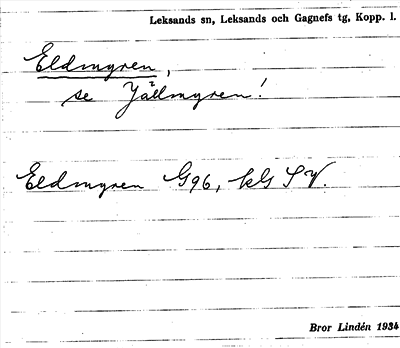 Leksands sn, Leksands och Gagnefs tg, Kopp. l.
Eldmyren,
se Jällmyren!
Eldmyren G96, kls SV.
Bror Lindén 1934